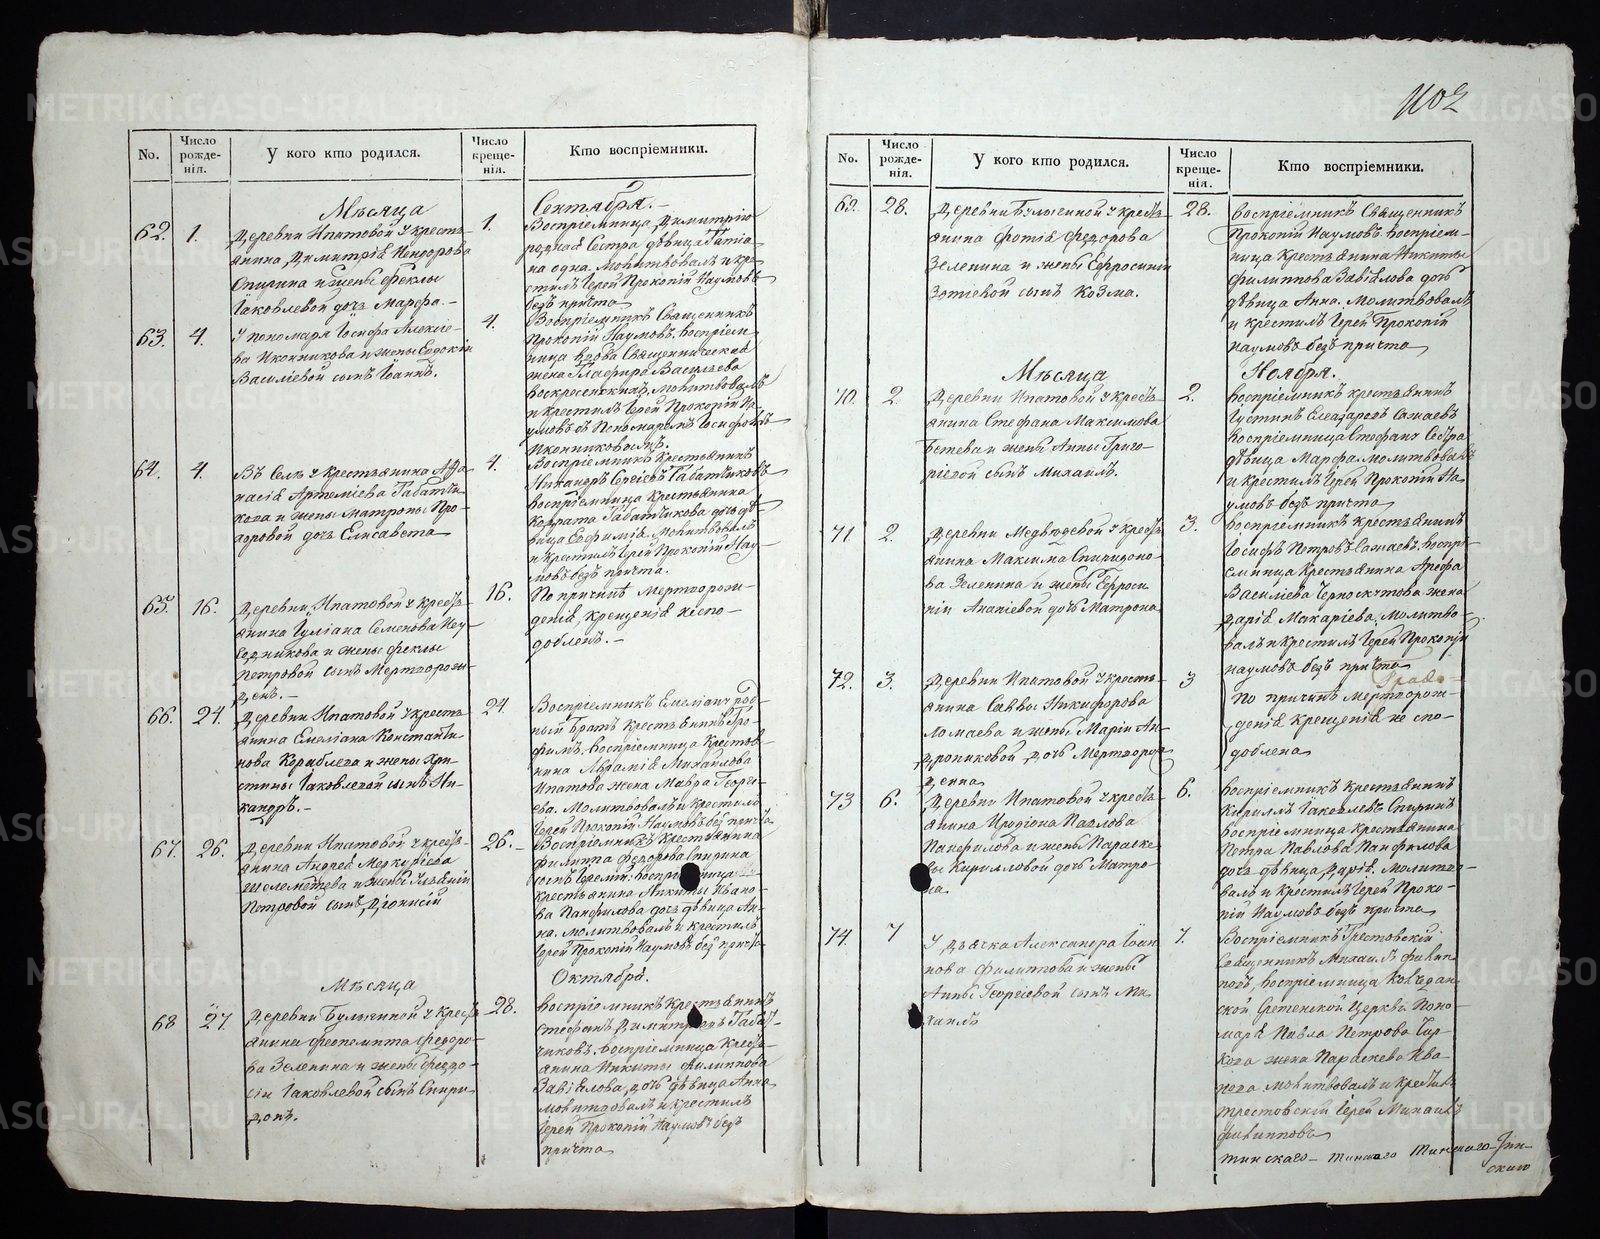 1102
No.
Число рожденія.
У кого кто родился.
Число крещенія.
Кто воспріемники.
Мѣсяца
Сентября.
62.
1.
Деревни Ипатовой у кресть-
янина Димитрія
Спирина и жены Феклы
Іаковлевой дочь Марфа.
1.
Воспріемница Димитрію
родная сестра дѣвица Татіа-
на одна. Молитвовалъ и кре-
стилъ Іерей Прокопій Наумовъ
безъ причта
63.
4.
У пономаря Іосифа Алексіе-
ва Иконникова и жены Евдокіи
Василіевой сынъ Іоаннъ.
4.
Воспріемникъ Священникъ
Прокопій Наумовъ, воспріем-
ница вдова Священническая
жена Глафира Васильева
Воскресенскихъ, Молитвовалъ
и крестилъ Іерей Прокопій На-
умовъ съ Пономаремъ Іосифомъ
Иконниковымъ.
64.
4.
Въ Селѣ у крестьянина Афа-
насія Артеміева Табатчи-
кова и жены Матроны Про-
хоровой дочь Елисавета
4.
Воспріемникъ крестьянинъ
Никандръ Сергіевъ Табатчиковъ
воспріемница крестьянина
Кодрата Табатчикова дочь дѣ-
вица Евфимія. Молитвовалъ
и крестилъ Іерей Прокопій Нау-
мовъ безъ причта.
65.
16.
Деревни Ипатовой у кресть-
янина Іуліана Семенова
и жены Феклы
Петровой сынъ Мертворож-
денъ.
16.
По причинѣ Мертворож-
денія, крещенія неспо-
добленъ.
66.
24.
Деревни Ипатовой у кресть-
янина Емеліана Константи-
нова Кораблева и жены Хри-
стины Іаковлевой сынъ Ни-
кандръ.
24.
Воспріемникъ Емеліану род-
ный братъ крестьянинъ Тро-
фимъ. воспріемница крестья-
нина Аврамія Михайлова
Ипатова жена Мавра Георгі-
ева. Молитвовалъ и крестилъ
Іерей Прокопій Наумовъ безъ причта
67.
26.
Деревни Ипатовой у кресть-
янина Андрея Меркуріева
Шелеметева и жены
Петровой сынъ Діонисій
26.
Воспріемникъ крестьянина
Филиппа Федорова Спирина
сынъ Іеремій, воспріемница
крестьянина Никиты Ивано-
ва Панфилова дочь дѣвица Ан-
на. Молитвовалъ и крестилъ
Іерей Прокопій Наумовъ безъ причта
Мѣсяца
Октября.
68
27
Деревни Булыгиной у кресть-
янина Феопемпта Федоро-
ва Зеленина и жены Федо-
сіи Іаковлевой сынъ Спири-
донъ.
28.
воспріемникъ крестьянинъ
Стефанъ Димитріевъ Табат-
чиковъ. воспріемница кресть-
янина Никиты Филиппова
Завіялова дочь дѣвица Анна
молитвовалъ и крестилъ
Іерей Прокопій Наумовъ безъ
причта
No.
Число рожденія.
У кого кто родился.
Число крещенія.
Кто воспріемники.
69.
28.
Деревни Булыгиной у кресть-
янина Фотія Федорова
Зеленина и жены Ефросиніи
Зотіевой сынъ Козма.
28.
воспріемникъ Священникъ
Прокопій Наумовъ. воспріем-
ница крестьянина Никиты
Филиппова Завіялова дочь
дѣвица Анна. Молитвовалъ
и крестилъ Іерей Прокопій
Наумовъ безъ причта
Мѣсяца
Ноября.
70.
2.
Деревни Ипатовой у кресть-
янина Стефана Максимова
Бетева и жены Анны Григо-
ріевой сынъ Михаилъ.
2.
воспріемникъ крестьянинъ
Іустинъ Елеазаровъ Сажаевъ
воспріемница Стефану сестра
дѣвица Марфа молитвовалъ
и крестилъ Іерей Прокопій На-
умовъ безъ причта
71
2.
Деревни Медвѣдевой у кресть-
янина Максима Спиридоно-
ва Зеленина и жены Ефроси-
ніи Ананіевой дочь Матрона
3.
воспріемникъ крестьянинъ
Іосифъ Петровъ Сажаевъ. воспрі-
емница крестьянина Арефа
Василіева Черноскутова жена
Дарія Макаріева. Молитво-
валъ и крестилъ Іерей Прокопій
Наумовъ безъ причта
72.
3.
Деревни Ипатовой у кресть-
янина Саввы Никифорова
Ломаева и жены Маріи Ан-
дрониковой дочь Мертворож-
денна
3
По причинѣ мертворож-
денія крещенія не спо-
доблена
73
6.
Деревни Ипатовой у кресть-
янина Иродіона Павлова
Панфилова и жены Параске-
вы Кирилловой дочь Матро-
на.
6.
воспріемникъ крестьянинъ
Кириллъ Іаковлевъ Спиринъ
воспріемница крестьянина
Петра Павлова Панфилова
дочь дѣвица Дарія. Молитво-
валъ и крестилъ Іерей Проко-
пій Наумовъ безъ причта
74.
7
У дьячка Александра Іоан-
нова Филиппова и жены
Анны Георгіевой сынъ Ми-
хаилъ
7.
Воспріемникъ Трестовскій
Священникъ Михаилъ Филип-
повъ, воспріемница Колчедан-
ской Сретенской Церкви Поно-
маря Павла Петрова
жена Параскева Ива-
нова молитвовалъ и крестилъ
Трестовскій Іерей Михаилъ
Филипповъ